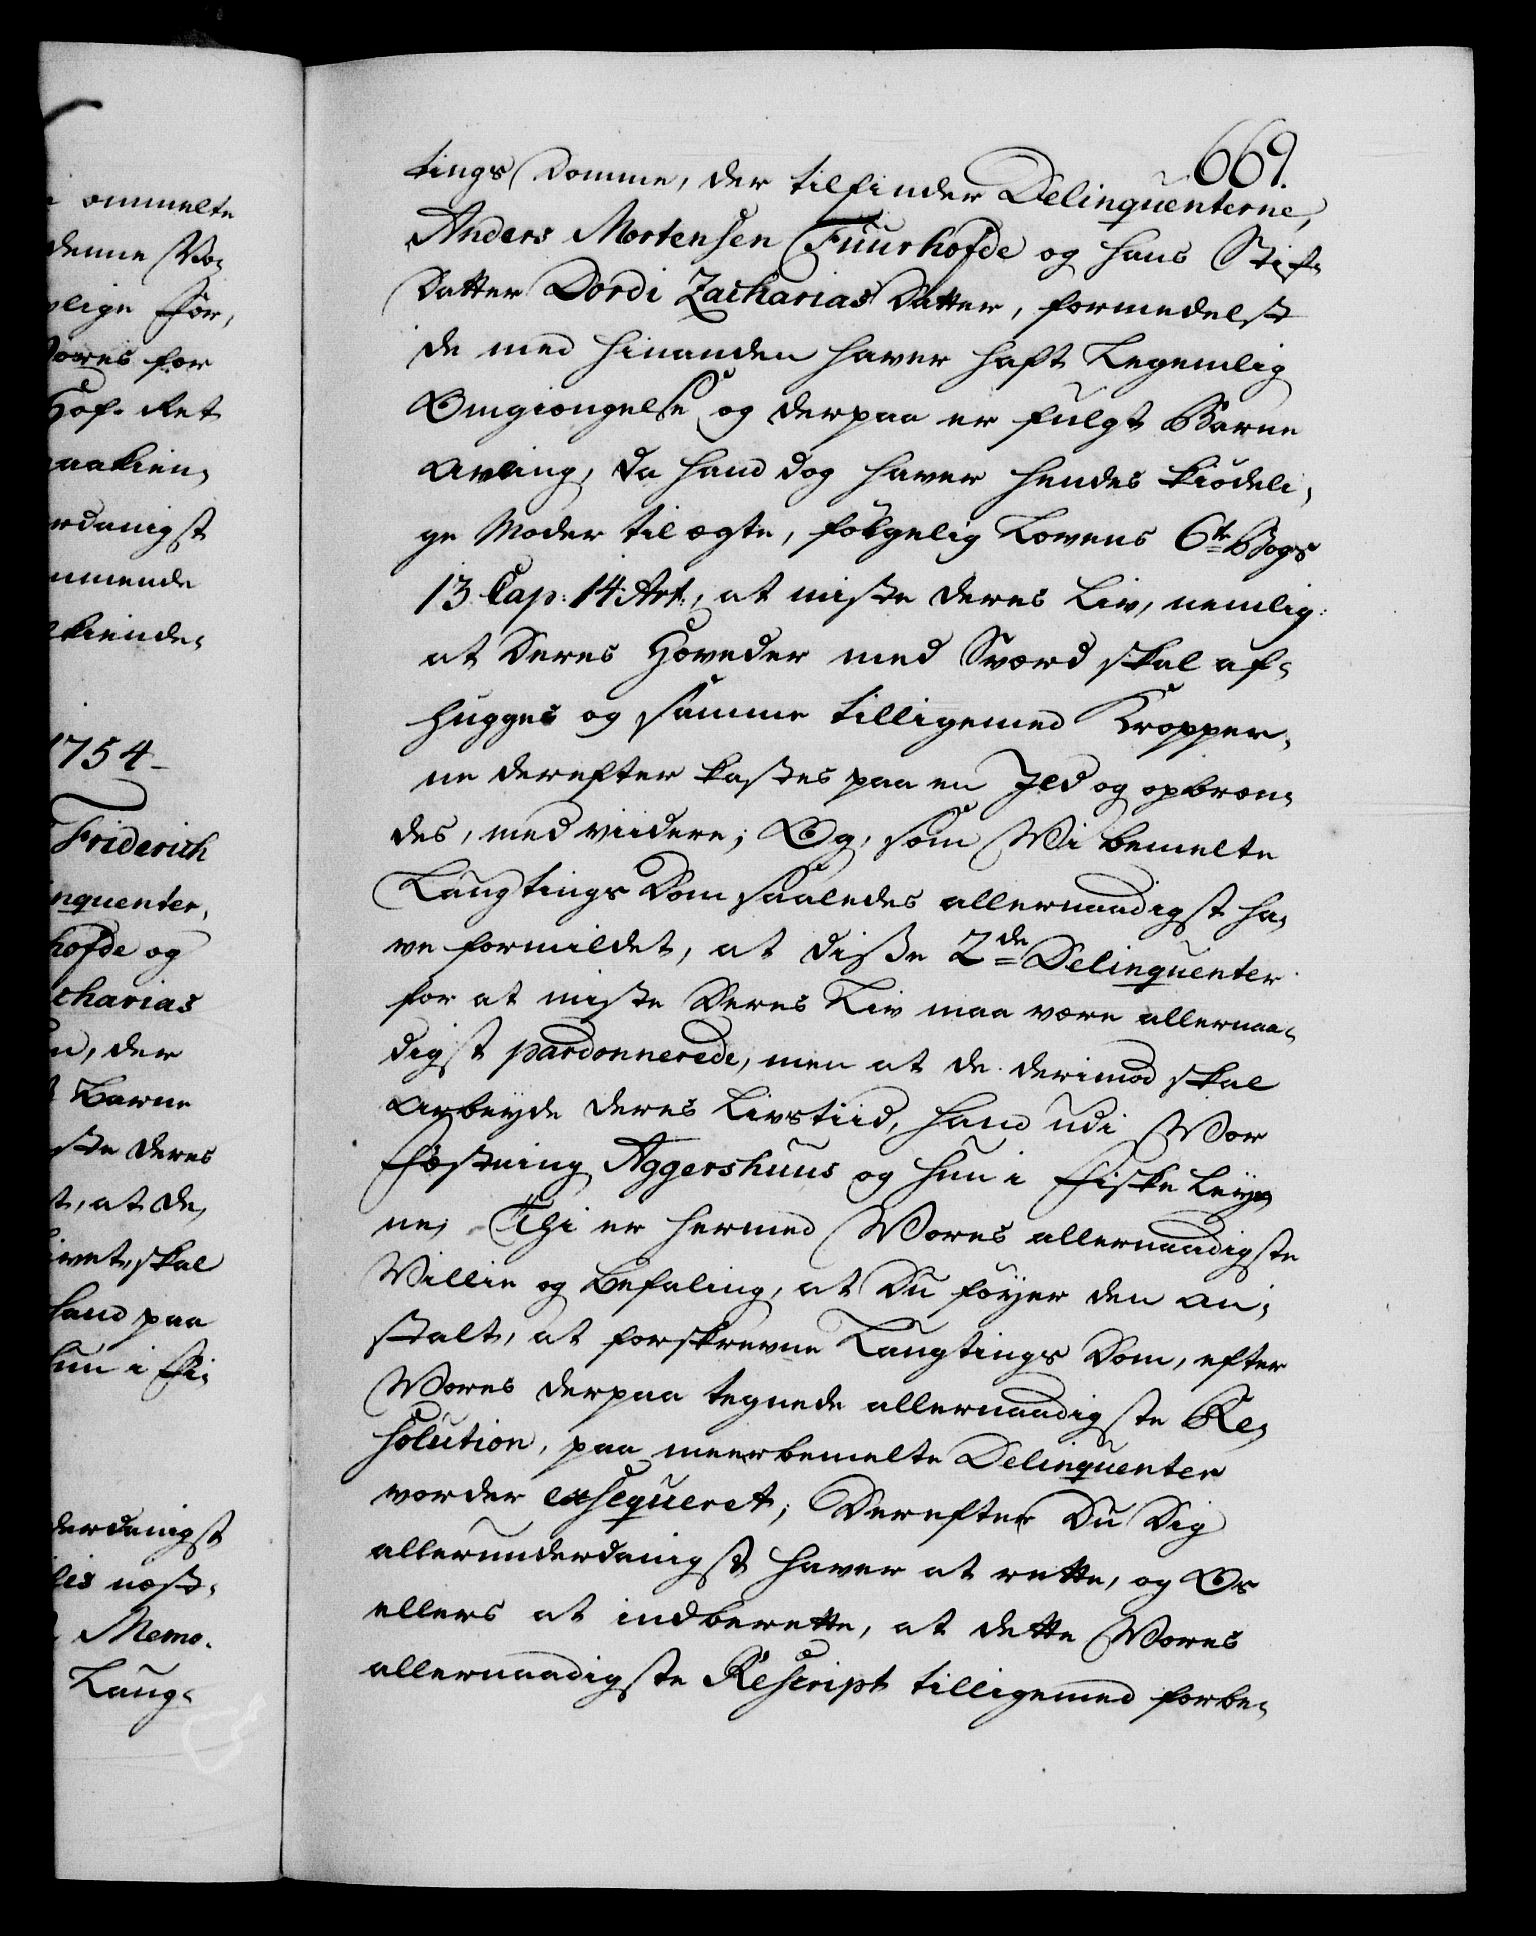 ommelte
denne Vo¬
lige For,
vores for
Hof-Ret
paakien¬
erdanigst
ommende
kiende¬
1754
Friderich
nquenter,
hofde og
charias
n, der
Barne
ste deres
t, at de,
ivet, skal
hand paa
hun i Fi¬
derdanigst
lis næst¬
Memo¬
Laug¬
669.
tings Domme, der tilfinder Delinquenterne,
Anders Mortensen Fuurhofde og hans Stif¬
Datter Dordi Zacharias Datter, formedelst
de med hinanden haver haft Legemlig
Omgiengelse og derpaa er fulgt Barne
Avling, da hand dog haver hendes kiødeli¬
ge Moder til ægte, følgelig Lovens 6te Bogs
13 Cap: 14 Art:, at miste deres Liv, nemlig:
at deres Hoveder med Sværd skal af¬
hugges og samme tilligemed Kropper¬
ne derefter kastes paa en Ild og opbræn¬
des, med viidere; Og, som Vi bemelte
Laugtings Dom saaledes allernaadigst ha¬
ve formildet, at disse 2de Delinquenter
for at miste deres Liv maa være allernaa¬
digst pardonnerede, men at de derimod skal
Arbeyde deres Livstiid, hand udi Vor
Fæstning Aggershuus og hun i Fiske Leye¬
ne, Thi er hermed Vores allernaadigste
Villie og Befaling, at Du føyer den An¬
stalt, at forskrevne Laugtings Dom, efter
Vores derpaa tegnede allernaadigste Re¬
solution, paa meerbemelte Delinquenter
vorder exseqveret; Derefter Du Dig
allerunderdanigst haver at rette, og Os
ellers at indberette, at dette Vores
allernaadigste Rescript tilligemed forbe¬